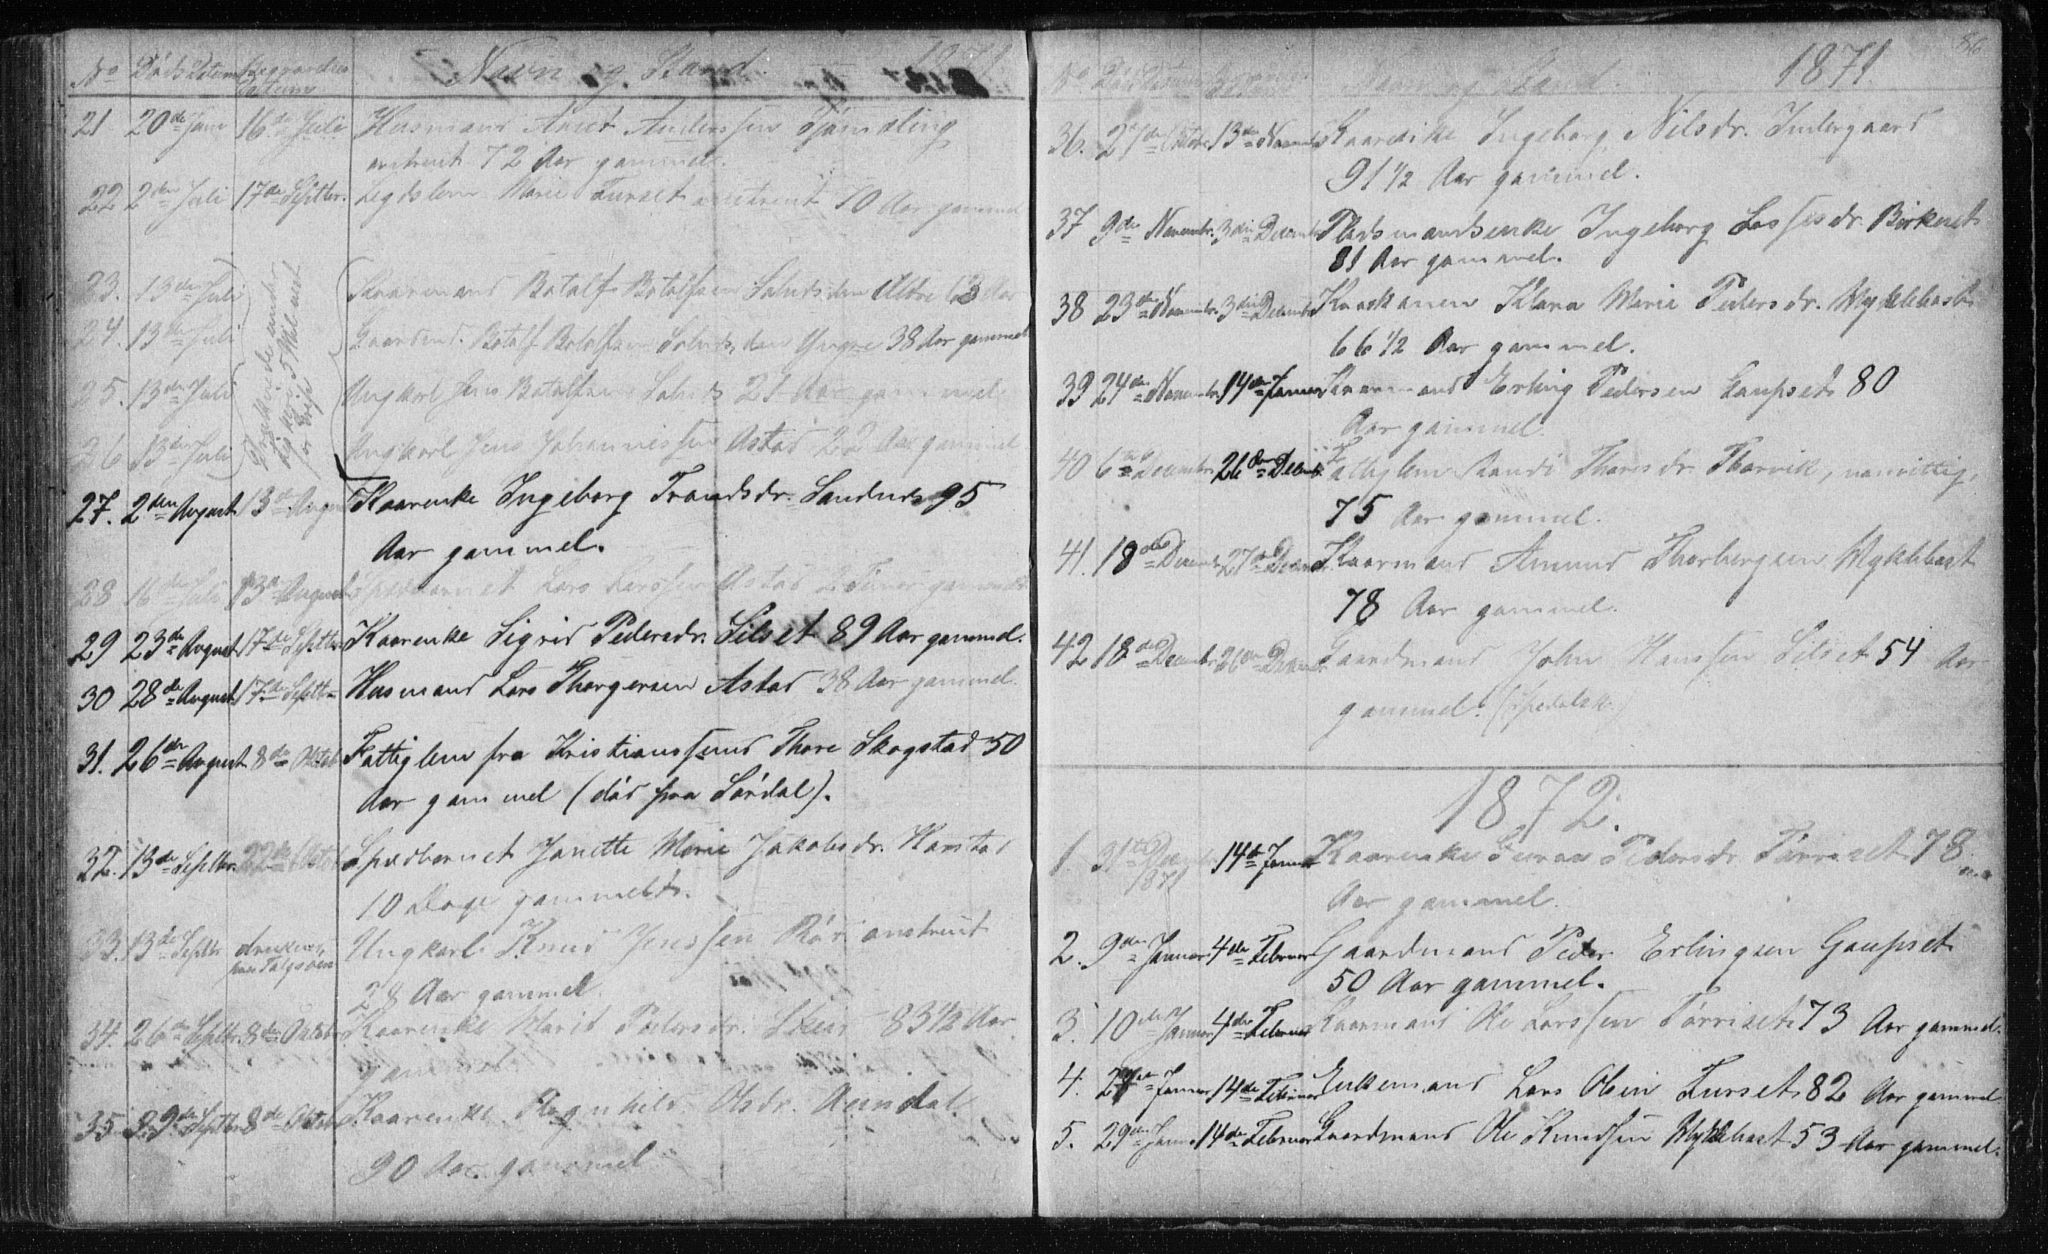 No Døds Datum Begravelses Datum Navn og Stand. 1871
21 20de Juni 16de Juli Husmand Anders Anderssen
omtrent 72 Aar gammel.
22 2den Juli 17de Septbr. Legdslem Marie Furset omtrent 70 Aar gammel
23. 13de Juli Kaarmand Botolf Botolfsen Solnds den Ældre 63 Aar
24. 13de Juli Gaardmd. Botolf Botolfsen Solnds, den Yngre 38 Aar gammel
25. 13de Juli Ungkarl Jens Botolfsen Solnds 21 Aar gammel
26 13de Juli Ungkarl Jens Johannessen Astad 22 Aar gammel
27. 2den August 13de August Kaarenke Ingeborg Trondsdr. Sandnds 95
Aar gammel.
28 16de Juli 13de August Spædbarnet Lars Larssen Astad 2 Timer gammelt
29 23de August 17de Septbr. Kaarenke Sigrid Pedersdr. Silset 89 Aar gammel.
30 28de August 17de Septbr Husmand Lars Thorgersen Astad 38 Aar gammel.
31. 26de August 8de Octob Fattiglem fra Kristianssund Thore Skogstad 50
Aar gammel (død fra Sørdal).
32. 13de Septbr. 22de Octob Spædbarnet Janette Marie Jakobsdr. Harstad
10 Dage gammelt.
33. 13de Septbr druknet, Ungkarl Knud Jenssen Rød omtrent
28 Aar gammel
34. 26de Septbr. 8de October Kaarenke Marit Pedersdr. 83 1/2 Aar
gammel
35 29de Septbr 8de Octob Kaarenke Ragnhild Olsdr. Aundal.
90 Aar gammel
No Døds Datum Navn og Stand. 1871 86
36. 27de Octobr. 13de Novembr Kaarenke Ingeborg Nilsdr. Indergaard
91 1/2 Aar gammel.
37 9de Novembr. 3die Decembr Pladsmandsenke Ingeborg Lassesdr. Birkeset
81 Aar gammel.
38 23de Novembr. 3die Decembr Kaarkonen Klara Marie Pedersdr. Myklebost
66 1/2 Aar gammel.
39 24de Novembr. 14de Januar Kaarmand Erling Pedersen Gaupset 80
Aar gammel.
40 6te Decembr. 26de Decembr Fattiglem Randi Thoresdr. Thorvik, vanvittig,
75 Aar gammel.
41. 18de Decembr 27de Decembr. Kaarmand Amund Thorbergsen Myklebost
78 Aar gammel.
42 18de Decembr 26de Decembr Gaardmand John Hanssen Silset 54 Aar
gammel. (spedalsk)
1872.
1. 31te Decbr 1871 14de Januar Kaarenke Guran Pedersdr. Tørriset 78
Aar gammel.
2. 9de Januar 4de Februar Gaardmand Peder Erlingsen Gaupset
50 Aar gammel.
3. 10de Januar 4de Februar Kaarmand Ole Larssen Tørriset 73 Aar gammel.
4. 27de Januar 14de Februar Enkemand Lars Olsen Furset 82 Aar gammel
5. 29de Januar 14de Februar Gaardmand Ole Knudsen Myklebost 53 Aar gammel.